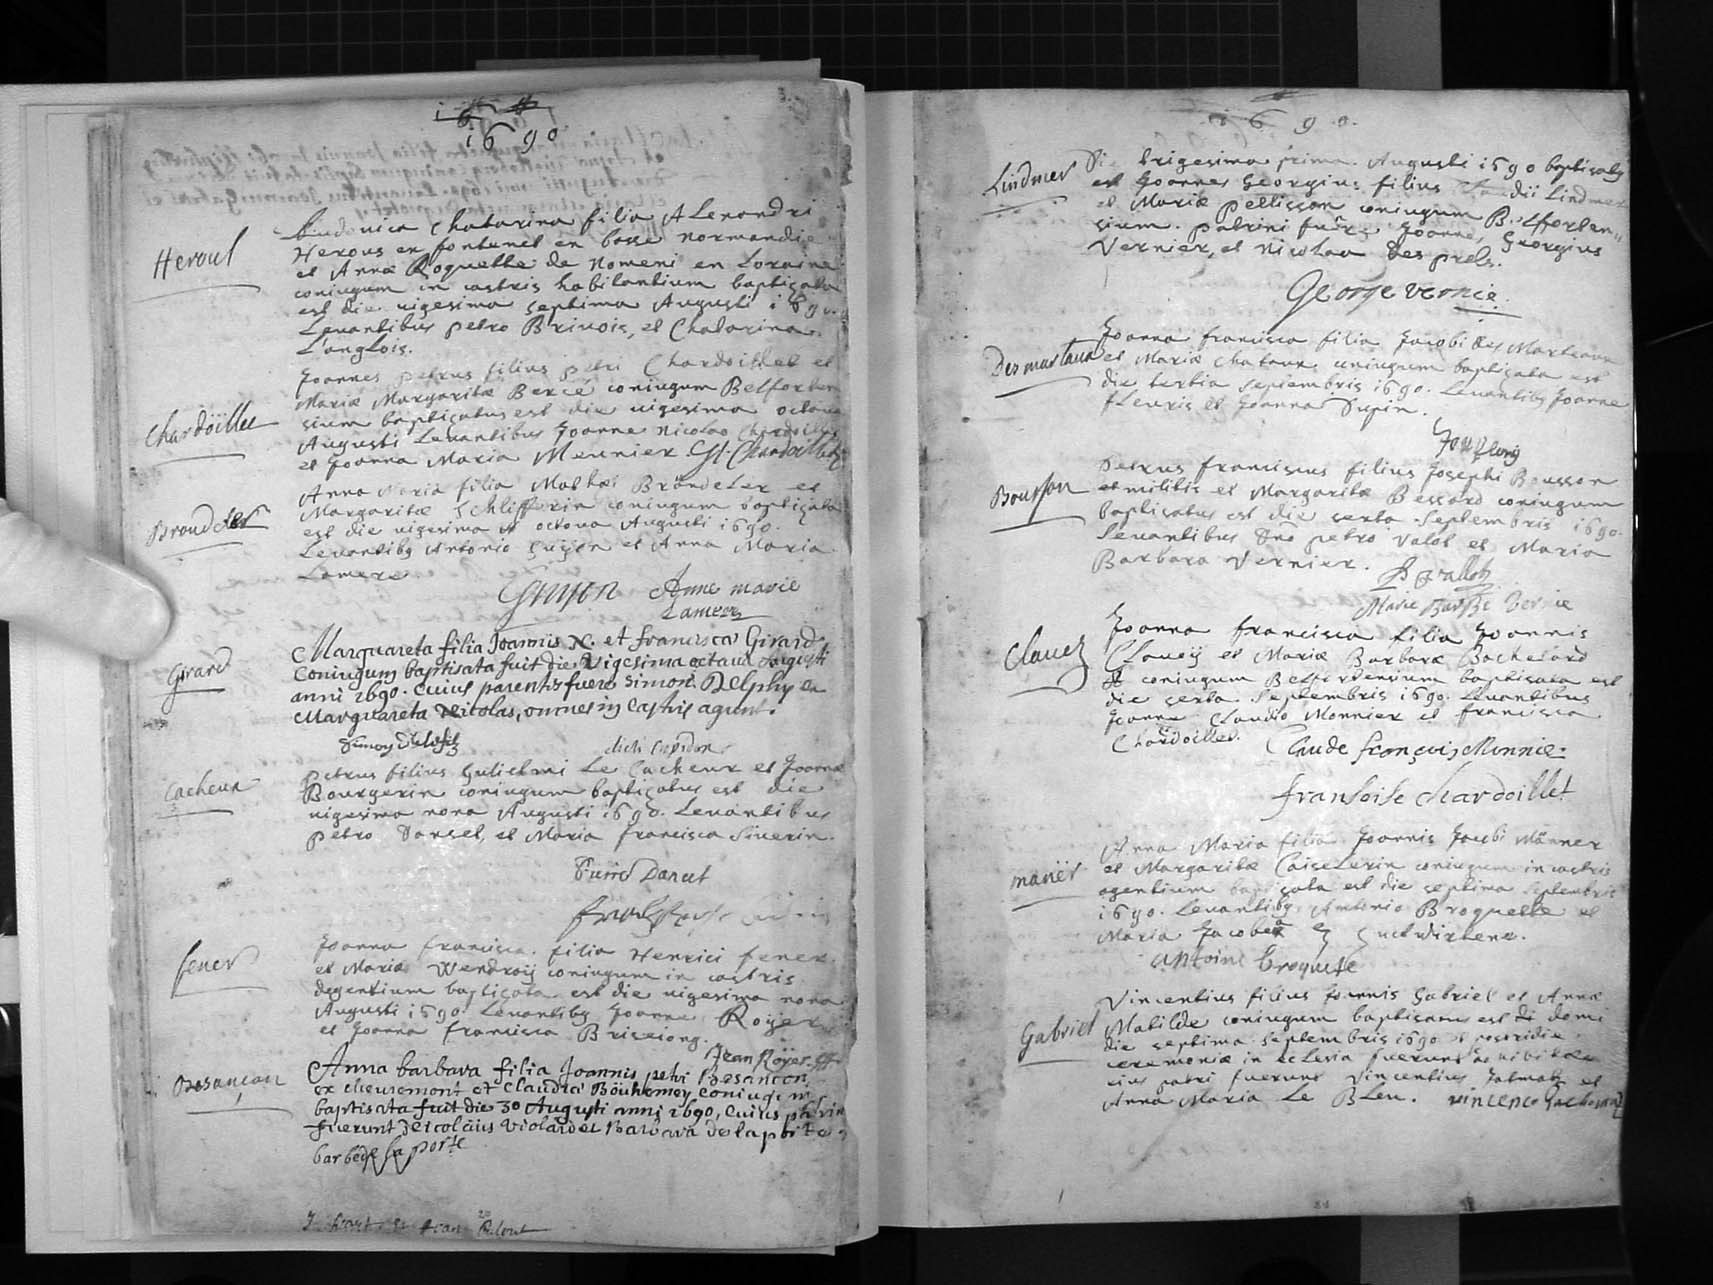 1690
3.
Heroul
Ludovica Chatarina filia Alexandri
Herous en fontenel en basse normandie
et Annæ Roquette de Nomeni en Loraine
coniugum in castris habitantium baptizata
est die uigesima septima Augusti 1690.
Leuantibus petro Briuois, et Chatarina
L'anglois.
Chardöillet
Joannes petrus filius petri Chardoillet et
Mariæ Margaritæ Bercé coniugum Belforten
sium baptizatus est die uigesima octaua
Augusti Leuantibus Joanne Nicolao Chardoillet
et Joanna Maria Meunier
Brandeler
Anna Maria filia Mathæi Brandeler et
Margaritæ Schlifferin coniugum baptizata
est die uigesima octaua Augusti 1690.
Leuantibq Antonio guyon et Anna Maria
Lamere
Guyon Anne marie
Lamere
Girard
Marguareta filia Joannis N. et francisca Girard
Coniugum baptisata fuit die Vigesima octaua Augusti
anni 1690. Cuius parentis fuere simon Delphy et
Marguareta Nicolas, omnes in Castris agunt.
Cacheux
petrus filius Gulielmi Le Cacheux et Joannæ
Bourgerin coniugum baptizatus est die
uigesima nona Augusti 1690. Leuantibus
petro Dansel, et Maria francisca Siuerin.
fener
Joanna francisca filia Henrici fener
et Mariæ Wendroij coniugum in castris
degentium baptizata est die uigesima nona
Augusti 1690. Leuantibq Joanne Royer
et Joanna francisca Briseiong.
Jean Röyer
Besançon
Anna barbara filia Joannis petri Besancon
ex cheuremont et Claudiæ coniugum
baptisata fuit die 30 Augusti anni 1690, Cuius patrini
fuerunt Nicolaus Violard et Barbara de la porte
barbe de la porte
1690.
Lindmer
Die trigesima prima Augusti 1690 baptizatq
est Joannes Georgius filius Claudii Lindmer
et Mariæ pellisson coniugum Belforten
sium. patrini fuere Joannes Georgius
Vernier, et Nicolaa Des prels.
George vernie.
Des martaux
Joanna francisca filia Jacobi des Marteaux
et Mariæ Chataux coniugum baptizata est
die tertia septembris 1690. Leuantibq Joanne
fleuris et Joanna Dupin.
Bousson
petrus franciscus filius Josephi Bousson
et militis et Margaritæ Bessard coniugum
baptizatus est die sexta Septembris 1690.
Leuantibus Dno petro Valot et Maria
Barbara Vernier.
Marie BarBe Vernie
Clauez
Joanna francisca filia Joannis
Clauez et Mariæ Barbaræ Bachelard
coniugum Belfortensium baptisata est
die sexta Septembris 1690. Leuantibus
Joanne Claudio Monnier et francisca
Chardoillet.
Claude françois Monnie.
fransoise chardoillet
manër
Anna Maria filia Joannis Jacobi Männer
et Margaritæ Caiselerin coniugum in castris
agentium baptizata est die septima Septembris
1690. Leuantibq Antonio Broquette et
Maria Jacobea
antoine broquete
Gabriel
Vincentius filius Joannis Gabriel et Annæ
Matilde coniugum baptisatus est domi
die septima Septembris 1690 et postridie
ceremoniæ in eclesia fuerunt
eius patri fuerunt Vincentius et
Anna Maria Le Bleu.